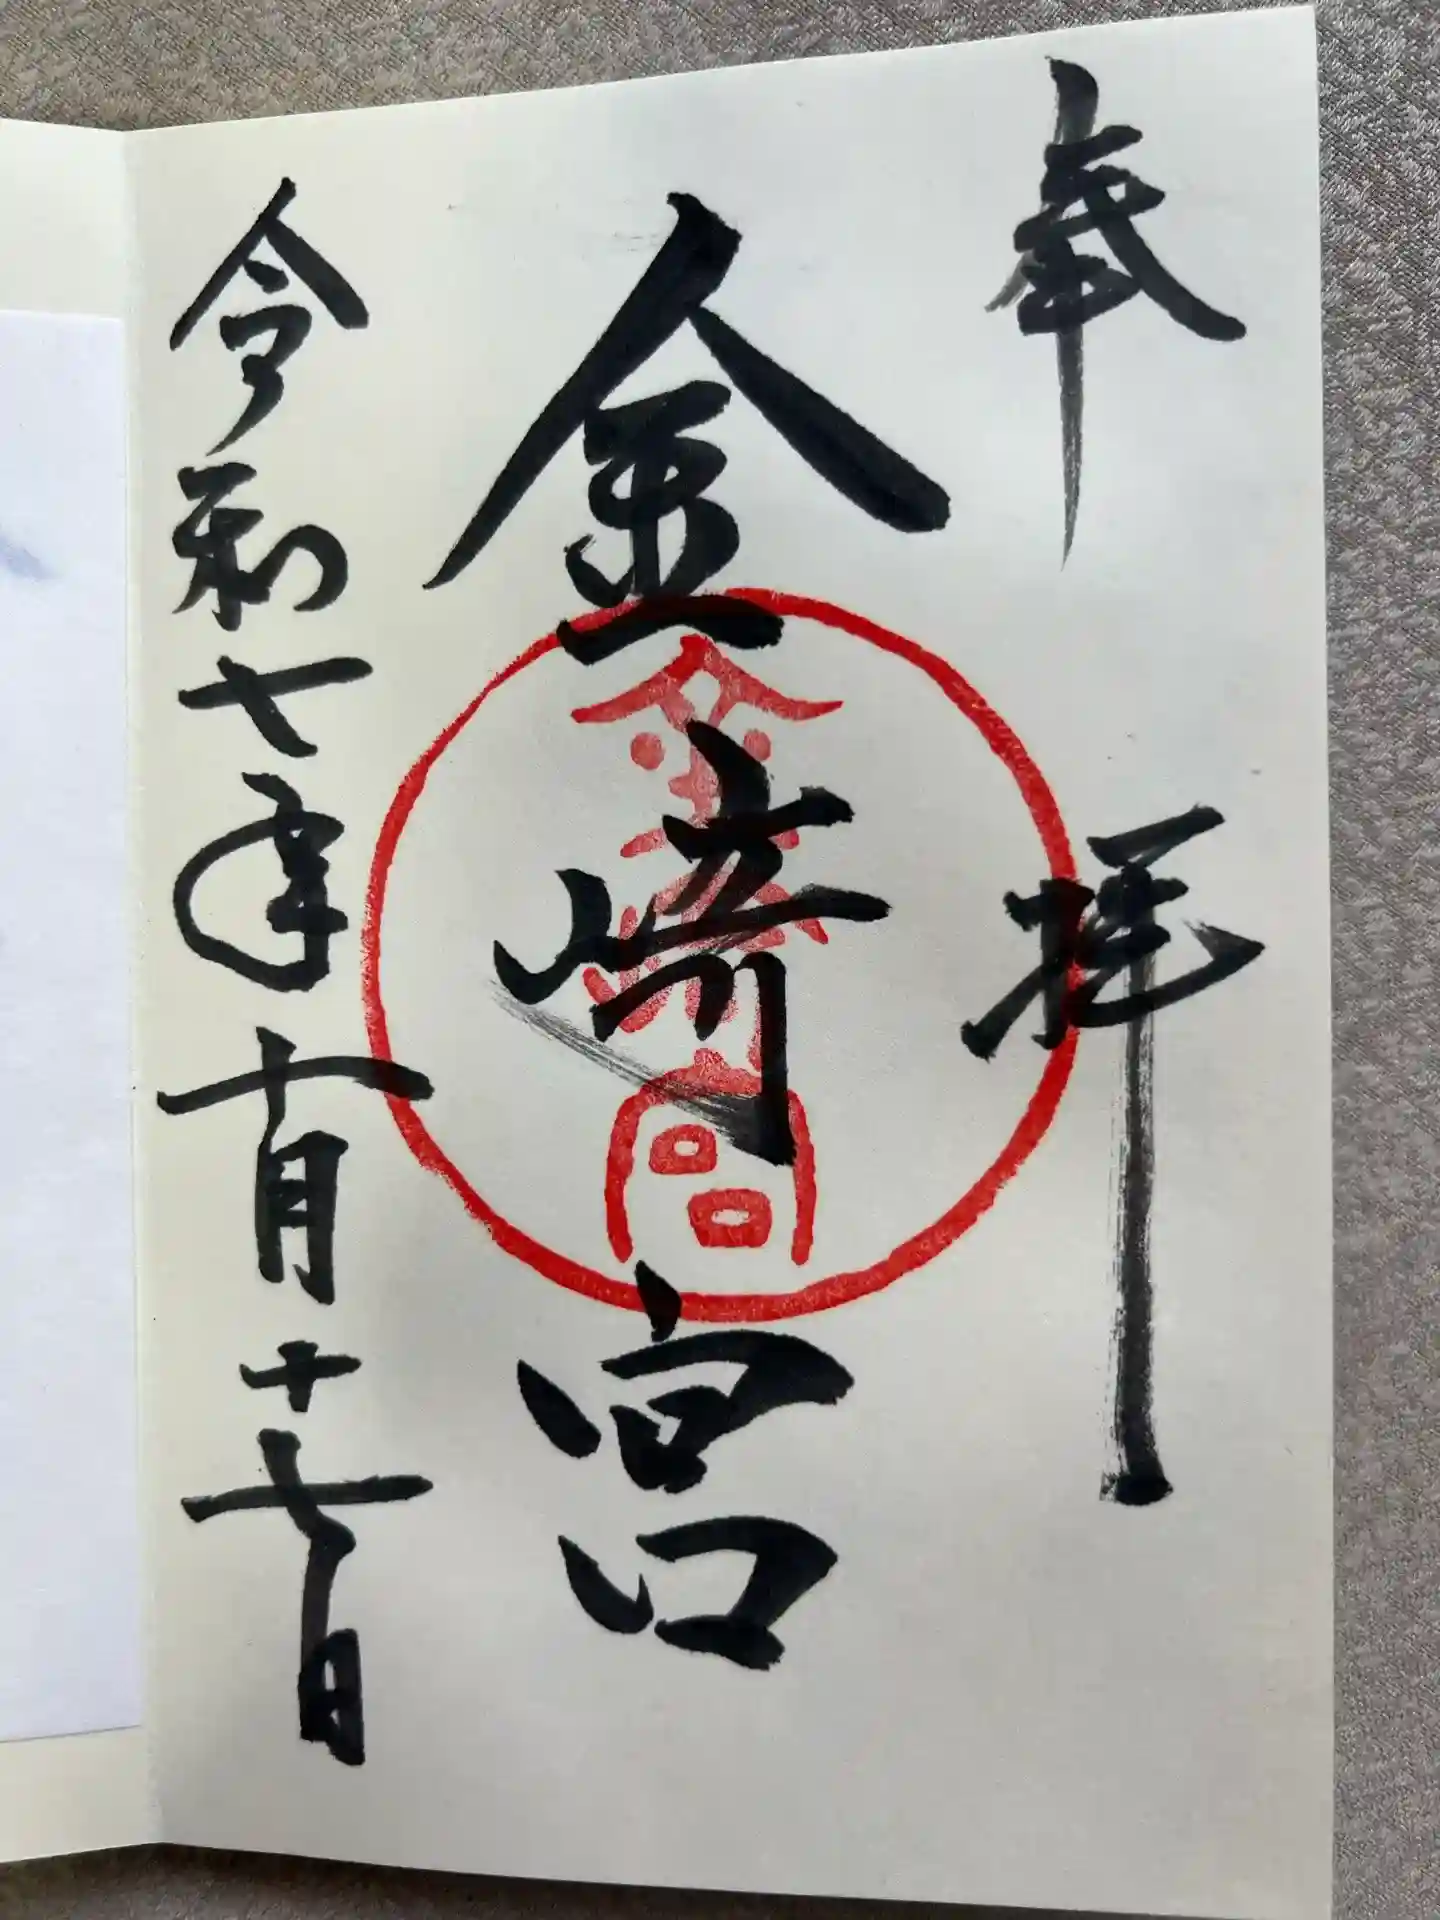 奉拝
金崎宮
金崎宮
令和七年十月十七日